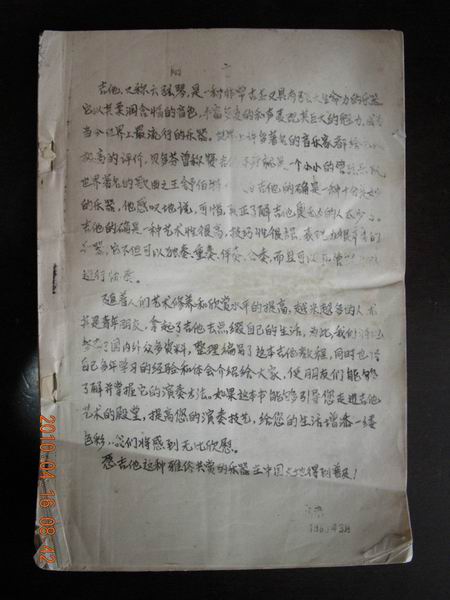 吉他,又称六弦琴,是一种非常古老又具有强大生命力的乐器
它以其柔润含情的音色,丰富多变的和声表现其巨大的魅力,成为
当今世界上最流行的乐器。世界上许多著名的音乐家都给
极高的评价,贝多芬曾称赞吉他 就是一个小小的管弦乐队
世界著名的歌曲之王舒伯特 吉他的确是一种十分
的乐器,他感叹地说,可惜,真正了解吉他奥妙的人太少了。
吉他的确是一种艺术性很高,技巧性很强,表现力很丰富的
乐器,它不但可以独奏、重奏、伴奏、合奏,而且可以
进行
随着人们艺术修养和欣赏水平的提高,越来越多的人尤
其是青年朋友,拿起了吉他去点缀自己的生活。为此,我们
参考了国内外众多资料,整理编写了这本吉他教程,同时也
自己多年学习的经验和体会介绍给大家,使朋友们能够
了解并掌握它的演奏方法。如果这本书能够引导您走进吉他
艺术的殿堂,提高您的演奏技艺,给您的生活增添一缕
色彩,我们将感到无比欣慰。
愿吉他这种雅俗共赏的乐器在中国大地得到普及!
2010-04-16 08:42